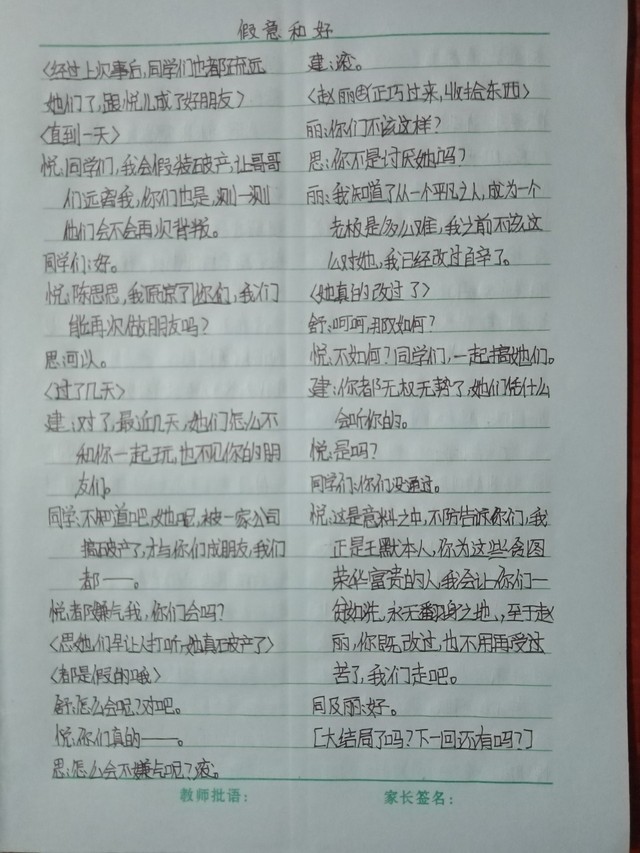 假意和好
〈经过上次事后,同学们也都不玩
她们了,跟悦儿成了好朋友〉
〈直到一天〉
悦:同学们,我会假装破产,让哥哥
们远离我,你们也是,测一测
他们会不会再次背叛。
同学们:好。
悦:陈思思,我原谅了你们,我们
能再次做朋友吗?
思:可以。
〈过了几天〉
建:对了,最近几天,她们怎么不
和你一起玩,也不见你的朋
友们。
同学:不知道吧,她呢,被一家公司
搞破产了,才与你们成朋友,我们
都——。
悦:都嫌弃我,你们会吗?
〈思她们早让人打听,她真破产了〉
〈都是假的哦〉
舒:怎么会呢?对吧。
悦:你们真的——。
思:怎么会不嫌弃呢?滚。
建:滚。
〈赵丽也正巧过来,收拾东西〉
丽:你们不该这样?
思:你不是讨厌她吗?
丽:我知道了从一个平凡之人,成为一个
老板是多么难,我之前不该这
么对她,我已经改过自辛了。
〈她真的改过了〉
舒:呵呵,那又如何?
悦:不如何?同学们,一起搞她们。
建:你都无权无势了,她们凭什么
会听你的。
悦:是吗?
同学们:你们没通过。
悦:这是意料之中,不防告诉你们,我
正是王默本人,你为这些贪图
荣华富贵的人,我会让你们一
贫如洗,永无翻身之地,,至于赵
丽,你既改过,也不用再受过
苦了,我们走吧。
同及丽:好。
[大结局了吗?下一回还有吗?]
教师批语:
家长签名: